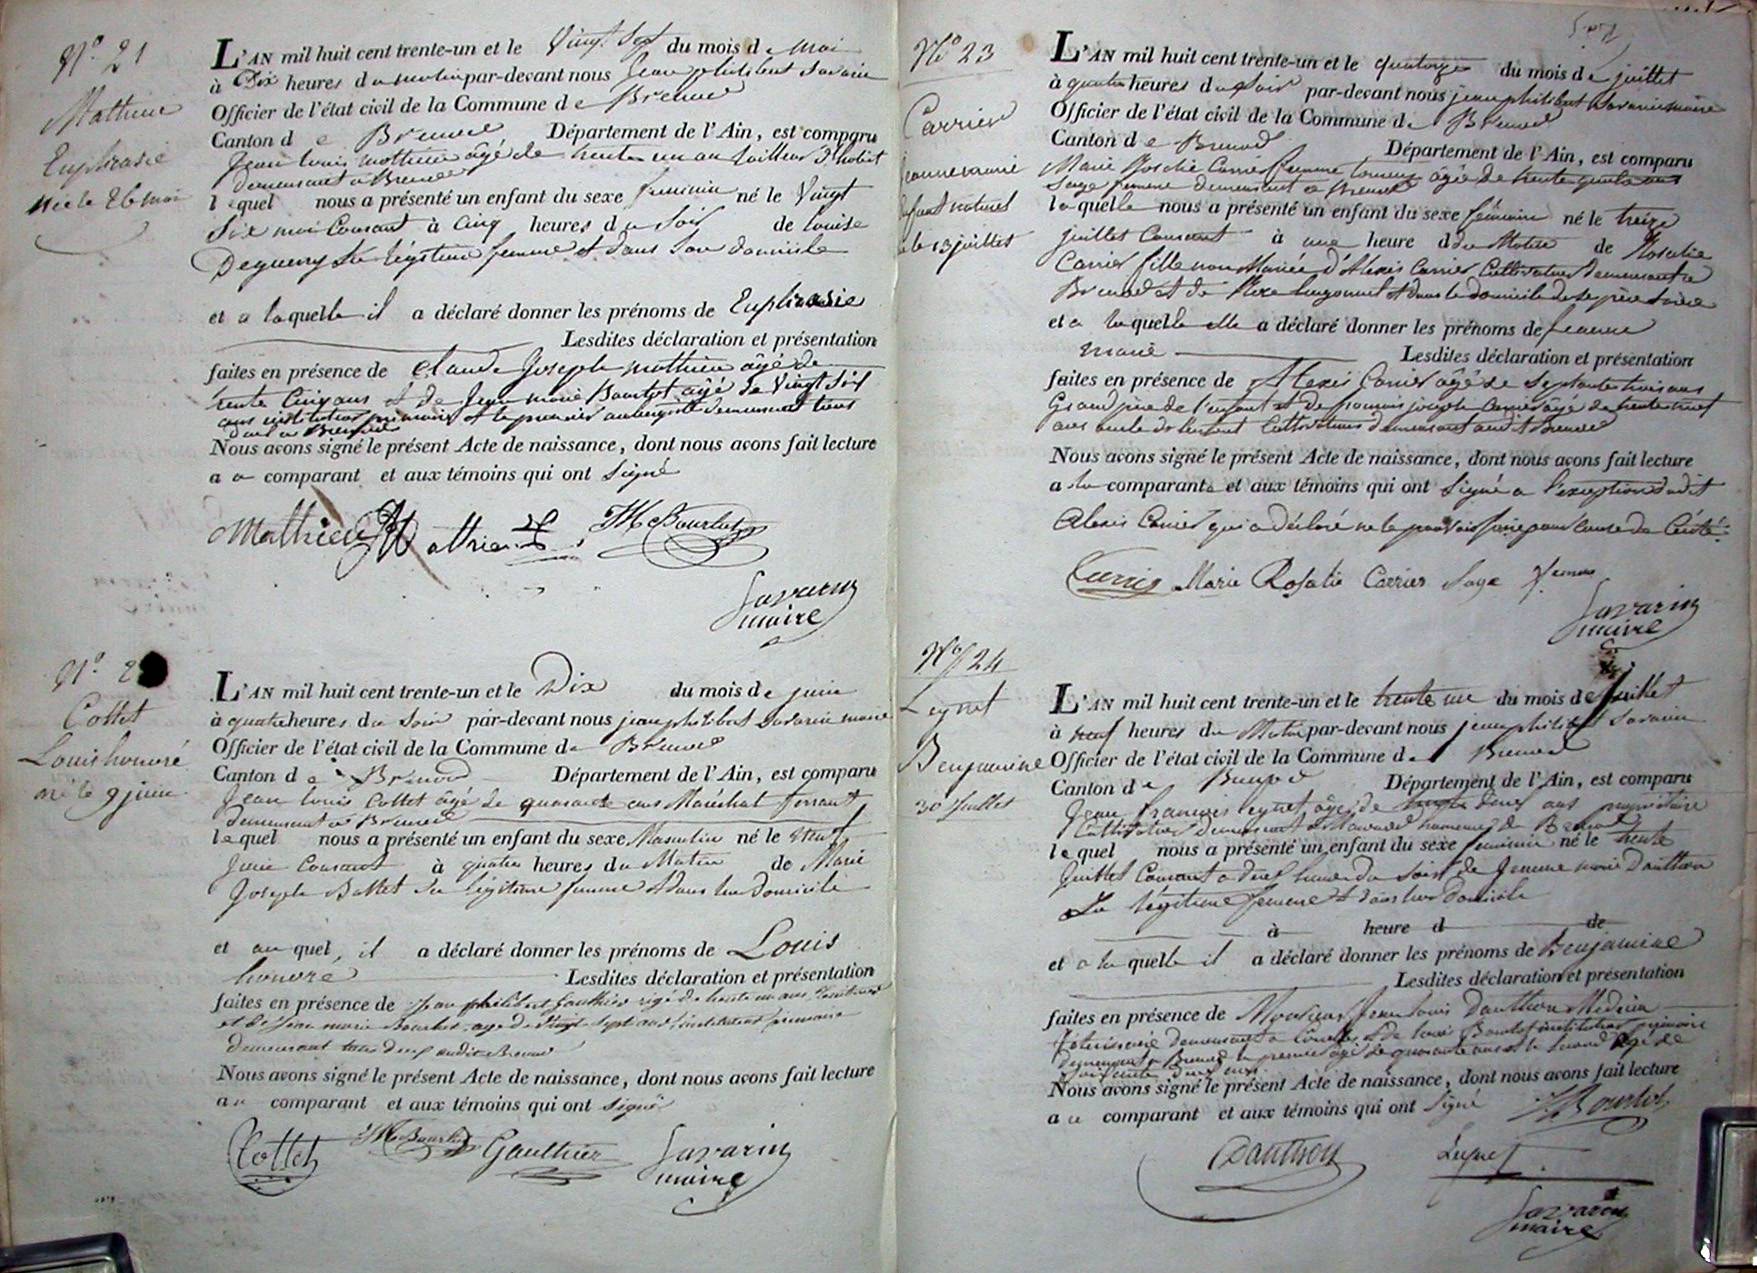 N° 21
Mathieu
Euphrasie
née le 26 mai
L'AN mil huit cent trente-un et le Vingt Sept du mois de mai
à Dix heures du matin par-devant nous Jean philibert Savarin
Officier de l'état civil de la Commune de Brenod
Canton de Brenod Département de l'Ain, est comparu
Jean Louis mathieu âgé de trente un an tailleur d'habit
demeurant à Brenod
lequel nous a présenté un enfant du sexe feminin né le Vingt
Six mai Courant à Cinq heures du Soir de Louise
Sa légitime femme et dans Son domicile
et a laquelle il a déclaré donner les prénoms de Euphrasie
Lesdites déclaration et présentation
faites en présence de Claude Joseph mathieu âgé de
trente Cinq ans et de Jean marie Bourlot âgé de Vingt Six
ans instituteur primaire et le premier aubergiste demeurant tous
deux à Brenod
Nous avons signé le présent Acte de naissance, dont nous avons fait lecture
au comparant et aux témoins qui ont Signé
Mathieu Mathieu JM Bourlot
Savarin
maire
N° 2
Collet
Louis honoré
né le 9 juin
L'AN mil huit cent trente-un et le Dix du mois de juin
à quatre heures du Soir par-devant nous jean philibert Savarin maire
Officier de l'état civil de la Commune de Brenod
Canton de Brenod Département de l'Ain, est comparu
Jean Louis Collet âgé de quarante ans Maréchal ferrant
demeurant à Brenod
lequel nous a présenté un enfant du sexe Masculin né le neuf
Juin Courant à quatre heures du Matin de Marie
Joseph Ballet Sa légitime femme et dans leur Domicile
et au quel, il a déclaré donner les prénoms de Louis
honoré Lesdites déclaration et présentation
faites en présence de Jean philibert Gauthier âgé de trente un ans
et de Jean marie Bourlot, age de Vingt Sept ans instituteur primaire
demeurant tous deux audit Brenod
Nous avons signé le présent Acte de naissance, dont nous avons fait lecture
au comparant et aux témoins qui ont Signé
Collet JM Bourlot Gauthier Savarin
maire
N° 23
Carrier
Jeanne marie
enfant naturel
née le 13 juillet
L'AN mil huit cent trente-un et le quatorze du mois de juillet
à quatre heures du Soir par-devant nous jean philibert Savarin maire
Officier de l'état civil de la Commune de Brenod
Canton de Brenod Département de l'Ain, est comparu
Marie Rosalie Carrier femme âgée de trente quatre ans
Sage femme demeurant a Brenod
laquelle nous a présenté un enfant du sexe féminin né le treize
juillet Courant à une heure du Matin de Rosalie
Carrier fille non Mariée d'Alexis Carrier Cultivateur demeurant a
Brenod et de et dans le domicile de Ses père et mère
et a laquelle elle a déclaré donner les prénoms de Jeanne
marie Lesdites déclaration et présentation
faites en présence de Alexis Carrier âgé de Septante trois ans
Grand père de l'enfant et de françois joseph Carrier âgé de trente neuf
ans oncle de l'enfant Cultivateurs demeurant audit Brenod
Nous avons signé le présent Acte de naissance, dont nous avons fait lecture
a la comparante et aux témoins qui ont Signé a l'exception dudit
Alexis Carrier qui a déclaré ne le pouvoir faire pour Cause de Cécité
Carrier Marie Rosalie Carrier Sage femme
Savarin
maire
N° 24
Leynet
Benjamine
30 Juillet
L'AN mil huit cent trente-un et le trente un du mois de Juillet
à neuf heures du Matin par-devant nous jean philibert Savarin
Officier de l'état civil de la Commune de Brenod
Canton de Brenod Département de l'Ain, est comparu
Jean François Leynet âgé de deux ans propriétaire
Cultivateur demeurant hameau de Brenod
lequel nous a présenté un enfant du sexe feminin né le trente
Juillet Courant a deux heures du Soir de Jeanne marie Dauthon
Sa légitime femme et dans leur Domicile
à heure d de
et a laquelle il a déclaré donner les prénoms de Benjamine
Lesdites déclaration et présentation
faites en présence de Monsieur Jean Louis Dauthon Médecin
Vétérinaire demeurant a et de Louis Bourlot instituteur primaire
demeurant a Brenod le premier âgé de quarante ans et le Second âgé de
Soixante deux ans
Nous avons signé le présent Acte de naissance, dont nous avons fait lecture
au comparant et aux témoins qui ont Signé Bourlot
Dauthon Leynet
Savarin
maire